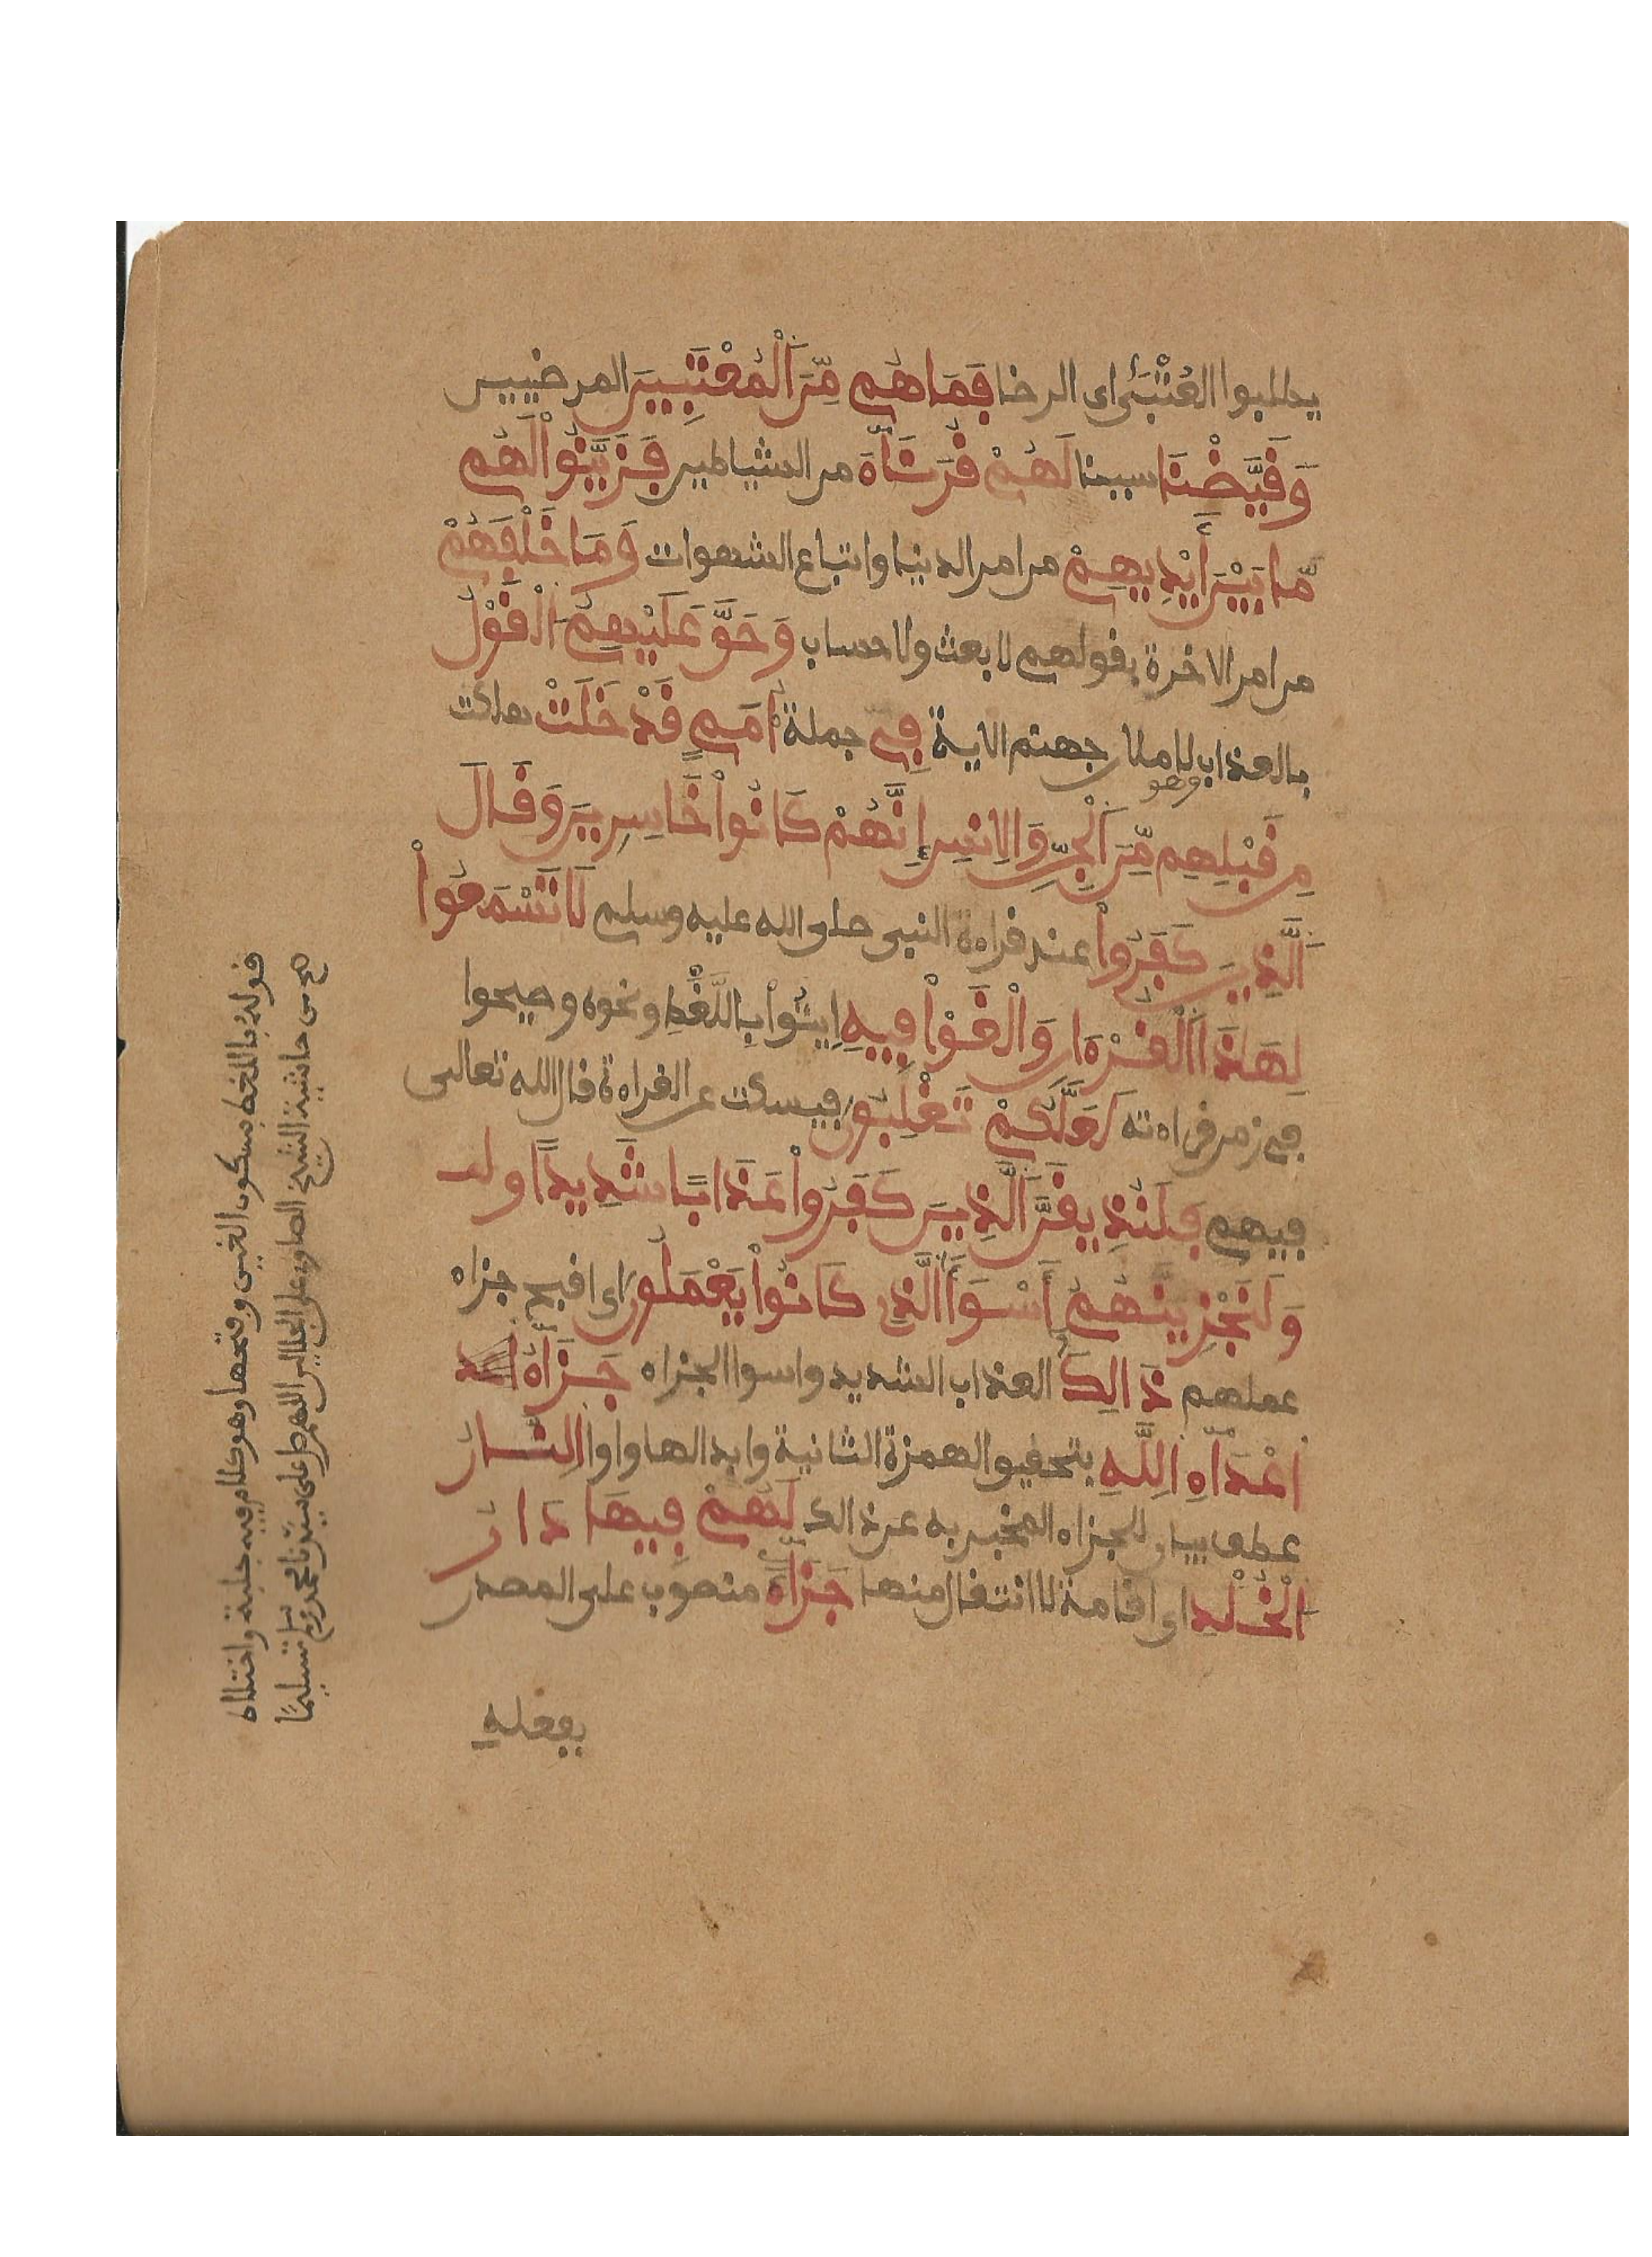 يطلبوا العُتْبَىٰ اى الرضا فَمَا هُم مِّنَ ٱلْمُعْتَبِينَ المرضيين
وَقَيَّضْنَا سببنا لَهُمْ قُرَنَآءَ من الشياطين فَزَيَّنُواْ لَهُم
مَّا بَيْنَ أَيْدِيهِمْ من امر الدنيا واتباع الشهوات وَمَا خَلْفَهُمْ
من امر الاخرة بقولهم لا بعث ولا حساب وَحَقَّ عَلَيْهِمُ ٱلْقَوْلُ
بالعذاب وهو لاملان جهنم الاية فِي جملة أُمَمٍ قَدْ خَلَتْ هلكت
مِن قَبْلِهِم مِّنَ ٱلْجِنِّ وَالِانسِ إِنَّهُمْ كَانُواْ خَاسِرِينَ وَقَالَ
ٱلَّذِينَ كَفَرُواْ عند قراءة النبى صلى الله عليه وسلم لَا تَسْمَعُواْ
لِهَٰذَا ٱلْقُرْءَانِ وَالْغَوْاْ فِيهِ اِيتُواْ بِاللَّغْطِ ونحوه وصيحوا
في زمن قراءته لَعَلَّكُمْ تَغْلِبُونَ فيسكت عن القراءة قال الله تعالى
فيهم فَلَنُذِيقَنَّ ٱلَّذِينَ كَفَرُواْ عَذَابًا شَدِيدًا ولـ
وَلَنَجْزِيَنَّهُمْ أَسْوَأَ ٱلَّذِى كَانُواْ يَعْمَلُونَ اى اقبح جزاء
عملهم ذَالِكَ العذاب الشديد واسوا الجزاء جَزَآءُ
اعْدَآءِ اِللَّهِ بتحقيق الهمزة الثانية وابدالها واوا النَّارُ
عطف بيان للجزاء المخبر به عن ذالك لَهُمْ فِيهَا دَارُ
ٱلْخُلْدِ اى اقامة لا انتقال منها جَزَآءً منصوب على المصدر
بفعله
قوله باللغط بسكون الغين وفتحها وهو كلام فيه جلبة واختلاط
هـ من حاشية الشيخ الصاوي على الجلالين اللهم صل على سيدنا محمد وسلم تسليمًا